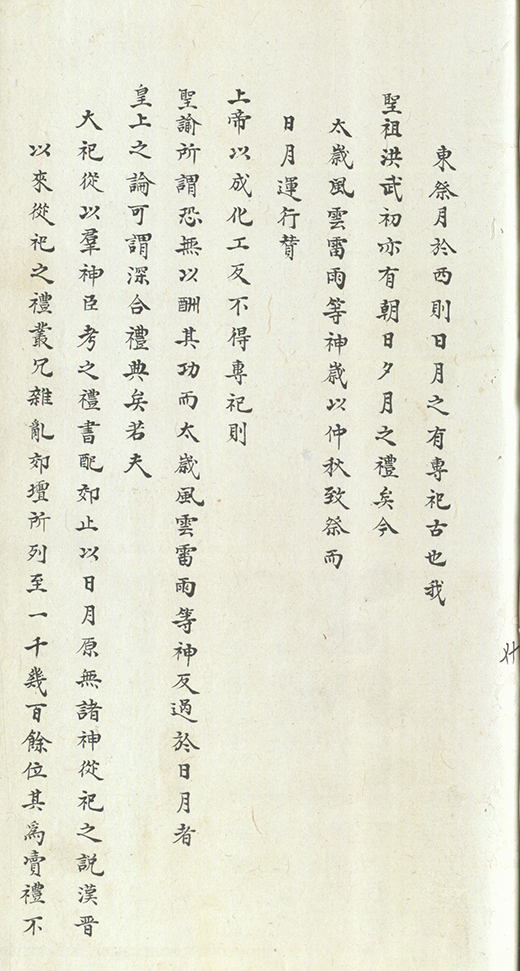 東祭月於西則日月之有專祀古也我
聖祖洪武初亦有朝日夕月之禮矣今
太嵗風雲雷雨等神嵗以仲秋致祭而
日月運行賛
上帝以成化工反不得專祀則
聖諭所謂恐無以酬其功而太嵗風雲雷雨等神反過於日月者
皇上之論可謂深合禮典矣若夫
大祀從以羣神臣考之禮書配郊止以日月原無諸神從祀之説漢晋
以來從祀之禮叢冗雜亂郊壇所列至一千幾百餘位其為賣禮不